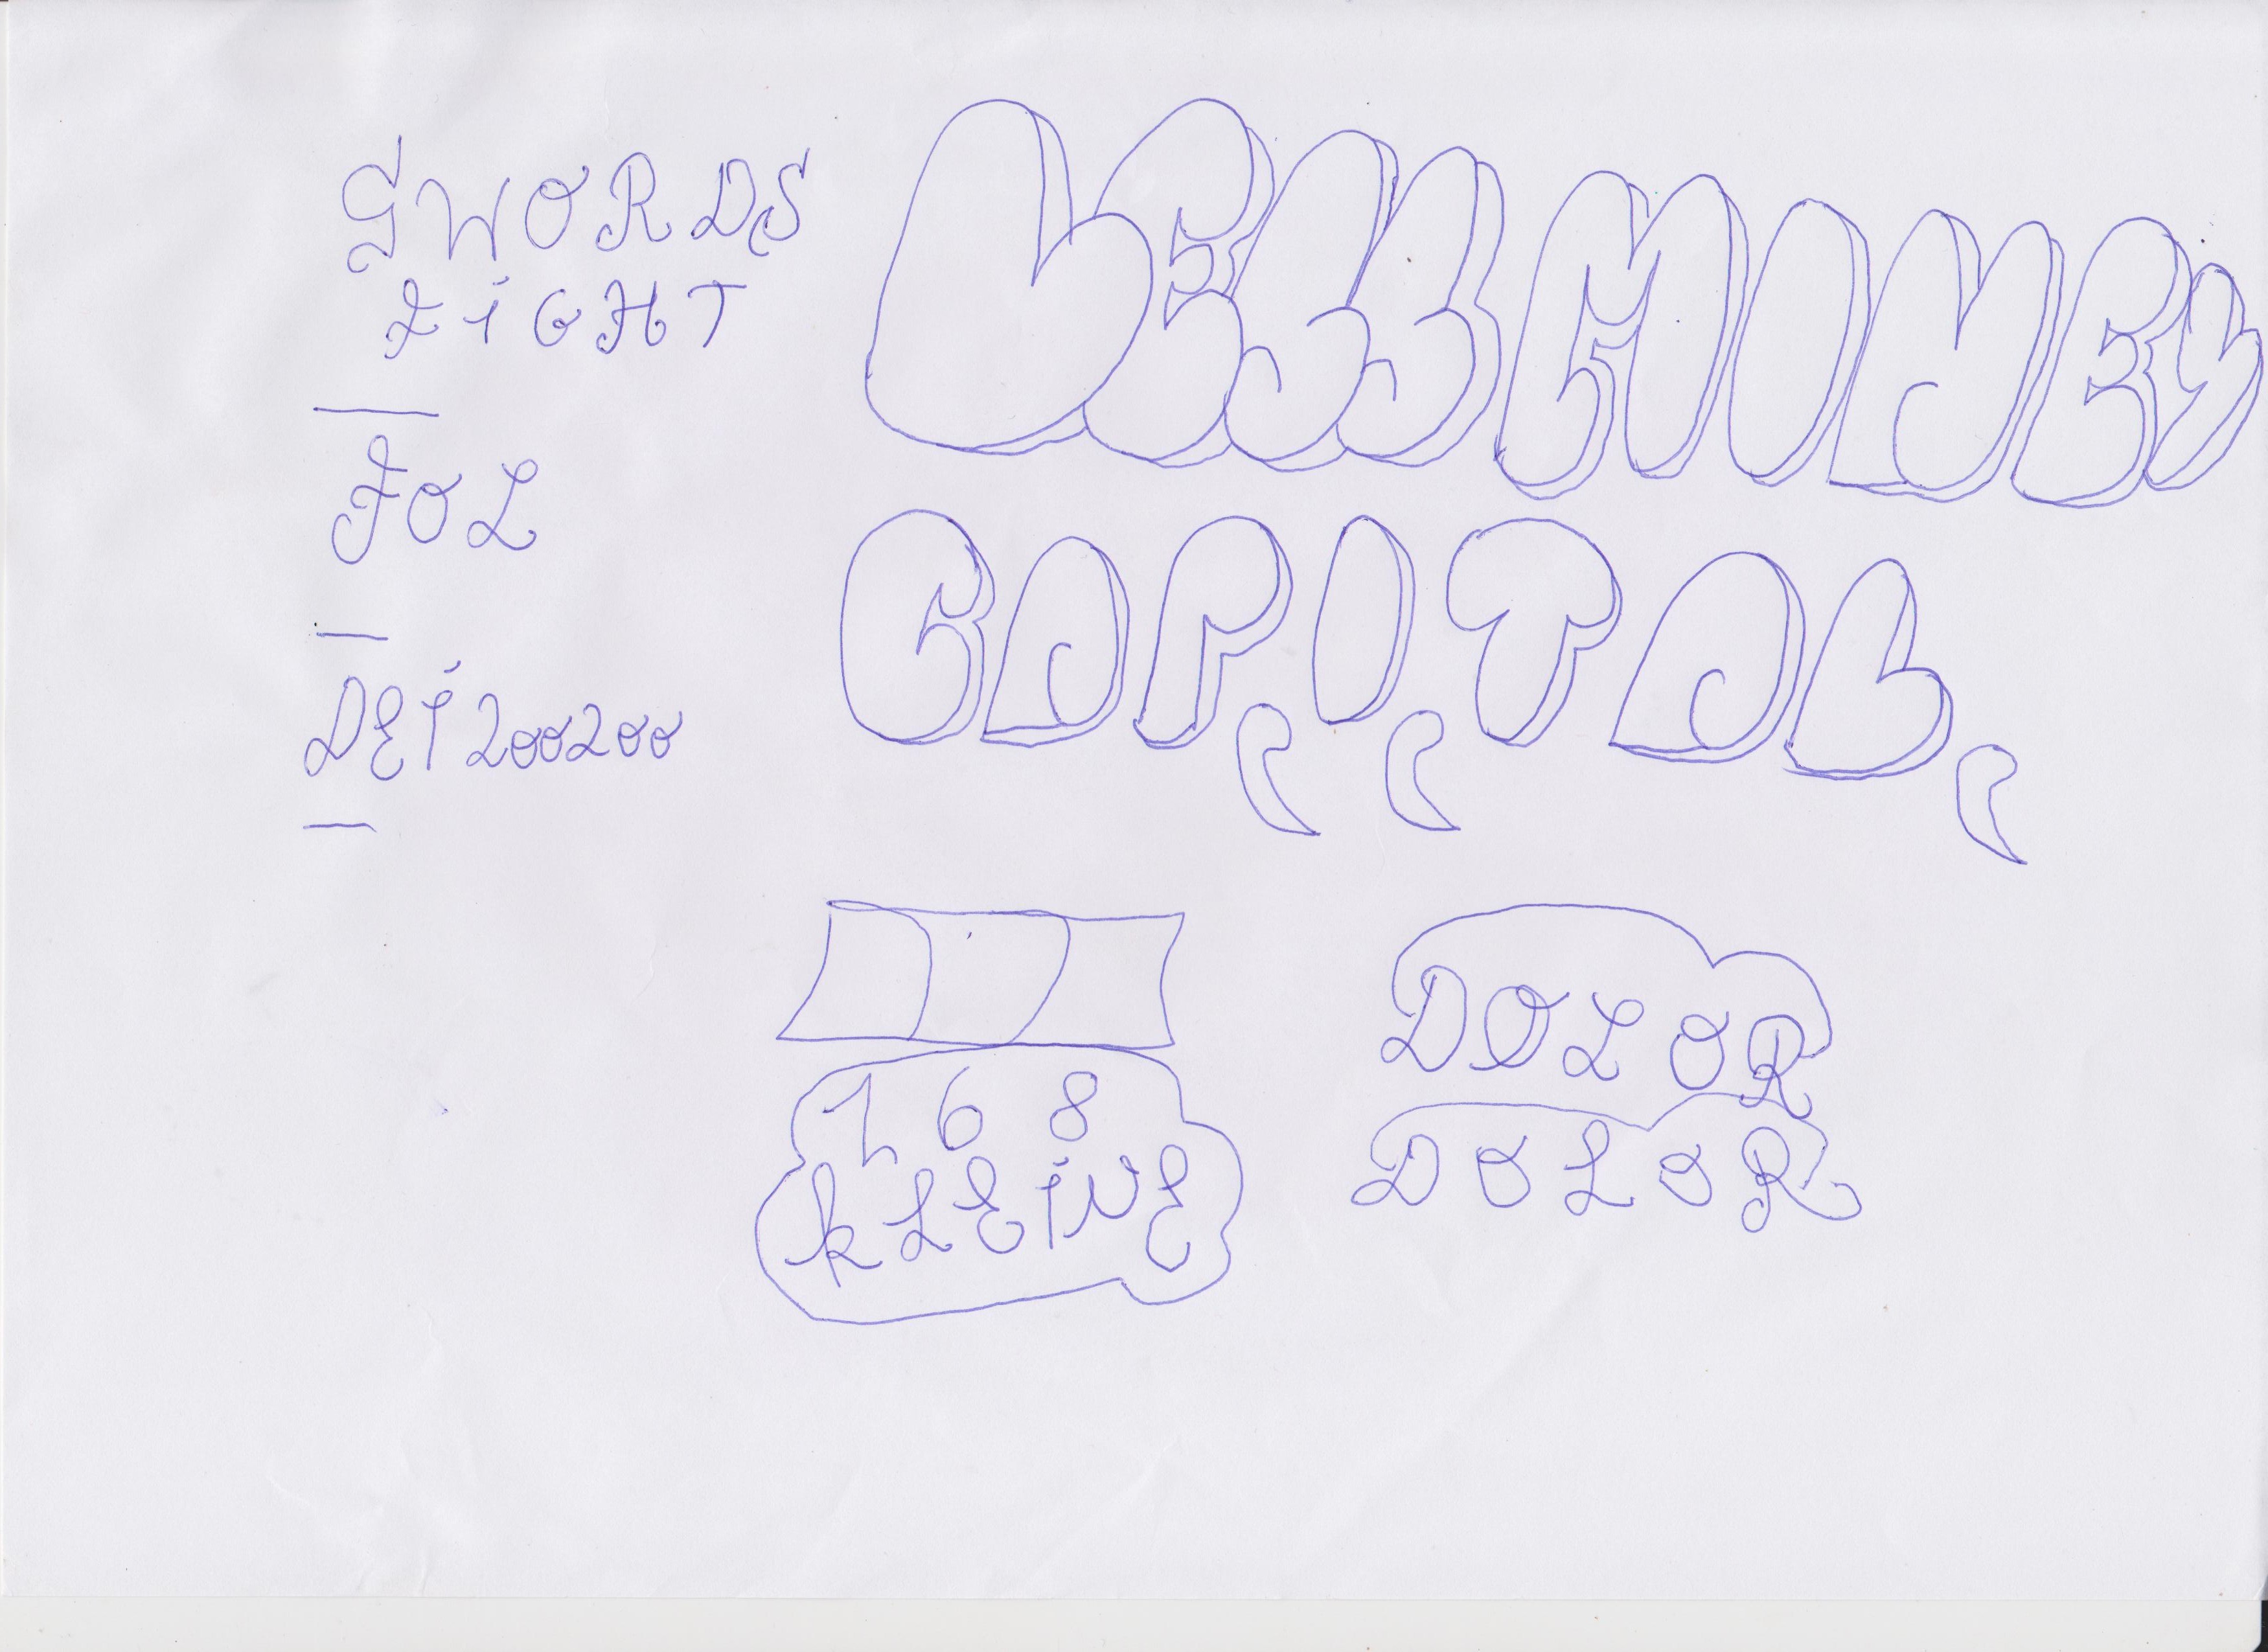 SWORDS
FIGHT
FOL
DEI200200
CAP,I,TAL,
168
KLEINE
DOLOR
DOLOR